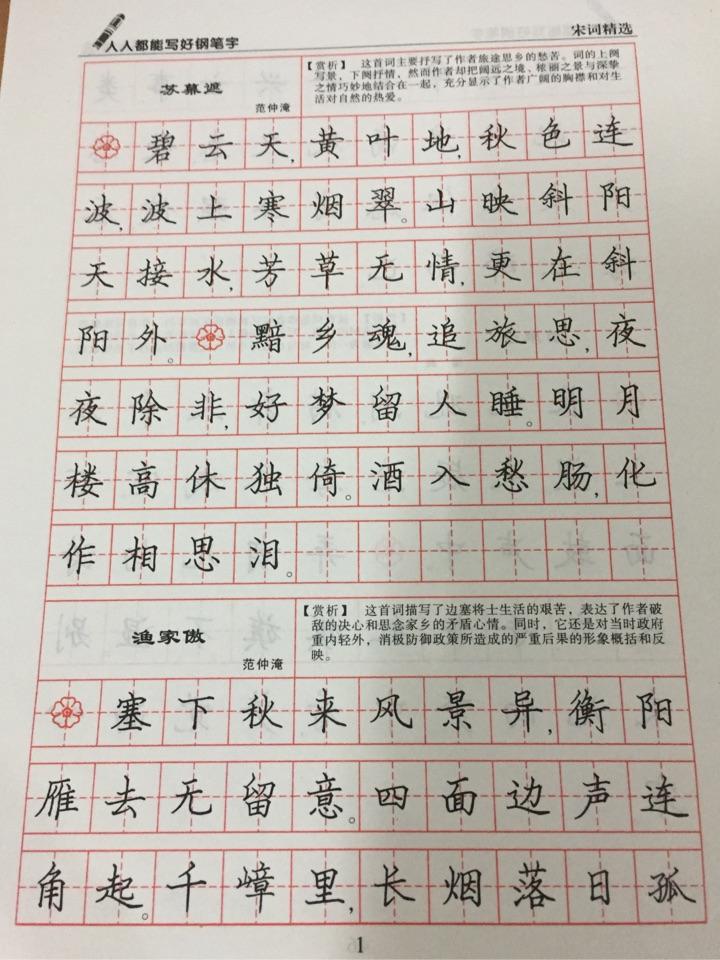 人人都能写好钢笔字
宋词精选
苏幕遮
范仲淹
【赏析】 这首词主要抒写了作者旅途思乡的愁苦。词的上阕
写景，下阕抒情，然而作者却把阔远之境、秾丽之景与深挚
之情巧妙地结合在一起，充分显示了作者广阔的胸襟和对生
活对自然的热爱。
碧云天，黄叶地，秋色连
波，波上寒烟翠。山映斜阳
天接水，芳草无情，更在斜
阳外。黯乡魂，追旅思，夜
夜除非，好梦留人睡。明月
楼高休独倚。酒入愁肠，化
作相思泪。
渔家傲
范仲淹
【赏析】 这首词描写了边塞将士生活的艰苦，表达了作者破
敌的决心和思念家乡的矛盾心情。同时，它还是对当时政府
重内轻外，消极防御政策所造成的严重后果的形象概括和反
映。
塞下秋来风景异，衡阳
雁去无留意。四面边声连
角起。千嶂里，长烟落日孤
1